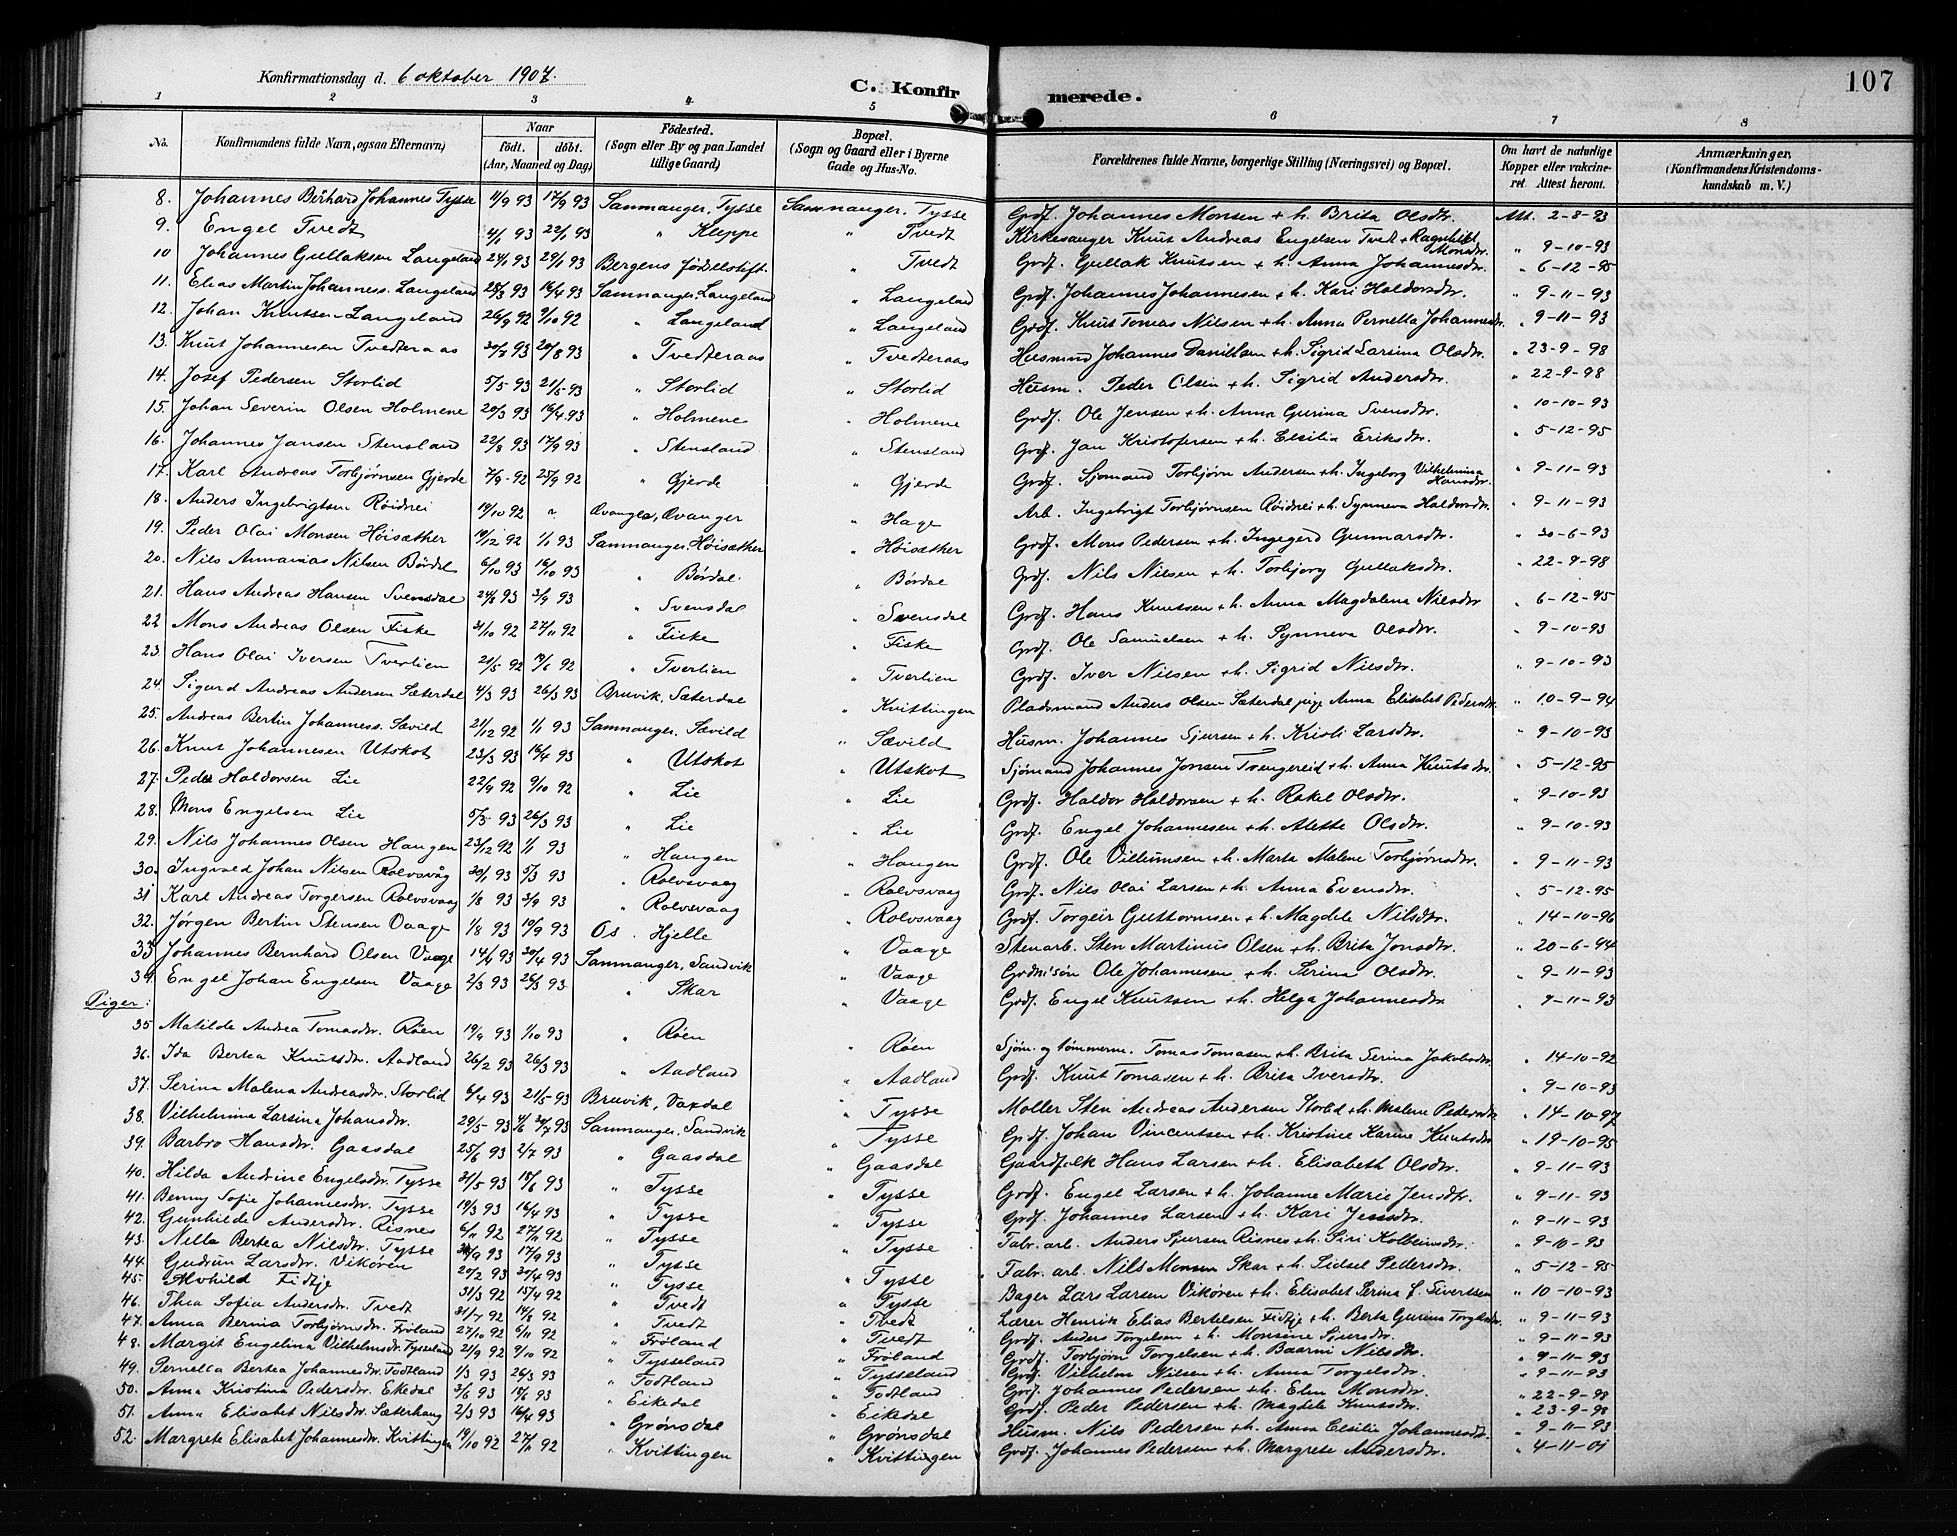 Konfirmationsdag d. 6 oktober 1907.
C. Konfirmerede.
107
1 2 3 4 5 6 7 8
No. Konfirmandens fulde Navn, ogsaa Efternavn) Naar født. døbt. (Aar, Maaned og Dag) Fødested. (Sogn eller By og paa Landet tillige Gaard) Bopæl. (Sogn og Gaard eller i Byerne Gade og Hus-No. Forældrenes fulde Navne, borgerlige Stilling (Næringsvei) og Bopæl. Om havt de naturlige Kopper eller vakcineret. Attest herom. Anmærkninger, (Konfirmandens Kristendomskundskab m. V.)
8. Johannes Johannes Tysse 11/9 93 17/9 93 Samnanger, Tysse Samnanger, Tysse Grdf. Johannes Monsen + h. Brita Olsdtr. Att. 2-8-93
9. Engel Tvedt 4/1 93 22/1 93 " Kleppe " Tvedt Kirkesanger Knut Andreas Engelsen Tvedt + Ragnhild Monsdtr. " 9-10-93
10 Johannes Gullaksen Langeland 24/1 93 29/1 93 Bergens Fødselstift. " Tvedt Grdf. Gullak Knutsen + h. Anna Johannesdtr. " 6-12-95
11. Elias Martin Johanness. Langeland 25/3 93 16/4 93 Samnanger, Langeland " Langeland Grdf. Johannes Johannesen + h. Kari Haldorsdtr. " 9-11-93
12. Johan Knutsen Langeland 26/9 92 9/10 92 " Langeland " Langeland Grdf. Knut Tomas Nilsen + h. Anna Pernella Johannesdtr. " 9-11-93
13. Knut Johannesen Tvedteraas 20/7 93 20/8 93 " Tvedteraas " Tvedteraas Husmnd Johannes Danielsen + h. Sigrid Larsina Olsdtr. " 23-9-98
14. Josef Pedersen Storlid 5/5 93 21/5 93 " Storlid " Storlid Husm. Peder Olsen + h. Sigrid Andersdtr. " 22-9-98
15. Johan Severin Olsen Holmene 20/3 93 16/4 93 " Holmene " Holmene Grdf. Ole Jensen + h. Anna Gurina Svensdtr. " 10-10-93
16. Johannes Jansen Stensland 22/8 93 17/9 93 " Stensland " Stensland Grdf. Jan Kristofersen + h. Cesilia Eriksdtr. " 5-12-95
17. Karl Andreas Torbjørnsen Gjerde 7/9 92 25/9 92 " Gjerde " Gjerde Grdf. Sjømand Torbjørn Andersen + h. Ingeborg Vilhelmina Hansdtr. " 9-11-93
18. Anders Ingebrigtsen Røidnei 19/10 92 Evanger, Evanger " Hage Arb. Ingebrigt Torbjørnsen Røidnei + h. Synneva Haldorsdtr. " 9-11-93
19. Peder Olai Monsen Høisæther 19/12 92 1/1 93 Samnanger, Høisæther " Høisæther Grdf. Mons Pedersen + h. Ingegerd Gunnarsdtr. " 20-6-93
20. Nils Annanias Nilsen Børdal 6/10 93 16/10 93 " Børdal " Børdal Grdf. Nils Nilsen + h. Torbjorg Gullaksdtr. " 22-9-98
21. Hans Andreas Hansen Svensdal 24/8 93 3/9 93 " Svensdal " Svensdal Grdf. Hans Knutsen + h. Anna Magdalena Nilsdtr. " 6-12-95
22 Mons Andreas Olsen Fiske 31/10 92 27/11 92 " Fiske " Fiske Grdf. Ole Samuelsen + h. Synneva Olsdtr. " 9-10-93
23. Hans Olai Iversen Tverlien 21/5 92 19/6 92 " Tverlien " Tverlien Grdf. Iver Nilsen + h. Sigrid Nilsdtr. " 9-10-93
24. Sigurd Andreas Andersen Sæterdal 4/3 93 26/3 93 Bruvik, Sæterdal " Kvittingen Pladsmand Anders Olsen Sæterdal pige Anna Elisabet Pedersdtr. " 10-9-94
25. Andreas Bertin Johanness. Sævild 21/12 92 1/1 93 Samnanger, Sævild " Sævild Husm. Johannes Sjursen + h. Kristi Larsdtr. " 9-10-93
26. Knut Johannesen Utskot 23/3 93 16/4 93 " Utskot " Utskot Sjømand Johannes Jonsen Tvengereid + h. Anna Knutsdtr. " 5-12-95
27. Peder Haldorsen Lie 22/9 92 9/10 92 " Lie " Lie Grdf. Haldor Haldorsen + h. Rakel Olsdtr. " 9-10-93
28. Mons Engelsen Lie 5/3 93 26/3 93 " Lie " Lie Grdf. Engel Johannesen + h. Alette Olsdtr. " 9-10-93
29. Nils Johannes Olsen Haugen 23/12 92 1/1 93 " Haugen " Haugen Grdf. Ole Villumsen + h. Marta Malene Torbjørnsdtr. " 9-11-93
30. Ingvald Johan Nilsen Rolvsvåg 30/1 93 5/3 93 " Rolvsvaag " Rolvsvaag Grdf. Nils Olai Larsen + h. Anna Evensdtr. " 5-12-95
31 Karl Andreas Torgersen Rolvsvaag 1/8 93 3/9 93 " Rolvsvaag " Rolvsvaag Grdf. Torgeir Guttormsen + h. Magdele Nilsdtr. " 14-10-96
32. Jørgen Bertin Stensen Vaage 1/8 93 19/9 93 Os. Hjelle " Vaage Stenarb. Sten Martinus Olsen + h. Brita Jonsdtr. " 20-6-94
33 Johannes Bernhard Olsen Vaage 14/4 93 30/4 93 Samnanger, Sandvik " Vaage Ole Johannesen + h. Serina Olsdtr. " 9-11-93
34. Engel Johan Engelsen Vaage 2/3 93 26/3 93 " Skar " Vaage Grdf. Engel Knutsen + h. Helga Johannesdtr. " 9-11-93
Piger:
35 Matilde Andrea Tomasdtr. Røen 19/9 93 1/10 93 " Røen " Røen Sjøm. og tømmerm. Tomas Tomasen + h. Brita Serina Jakobsdtr. " 14-10-92
36. Ida Bertea Knutsdtr. Aadland 26/2 93 26/3 93 " Aadland " Aadland Grdf. Knut Tomasen + h. Brita Iversdtr. " 9-10-93
37. Serina Malena Andreasdtr. Storlid 6/4 93 21/5 93 Bruvik, Vaxdal " Tysse Møller Sten Andreas Andersen Storlid + h. Malene Pedersdtr. " 14-10-97
38. Vilhelmina Larsina Johansdtr. 29/5 93 30/7 93 Samnanger, Sandvik " Tysse Grdf. Johan Vincentsen + h. Kristine Karine Knutsdtr. " 19-10-95
39. Barbro Hansdtr. Gaasdal 25/6 93 2/7 93 " Gaasdal " Gaasdal Gaardfolk Hans Larsen + h. Elisabeth Olsdtr. " 9-11-93
40. Hilda Andrine Engelsdtr. Tysse 21/5 93 18/6 93 " Tysse " Tysse Grdf. Engel Larsen + h. Johanne Marie Jensdtr. " 9-11-93
41. Benny Sofie Johannesdtr. Tysse 19/3 93 16/4 93 " Tysse " Tysse Grdf. Johannes Larsen + h. Kari Jensdtr. " 9-11-93
42. Gunhilde Andersdtr. Risnes 6/11 92 27/11 92 " Tysse " Tysse Fabr. arb. Anders Sjursen Risnes + h. Siri Kolbeinsdtr. " 9-10-93
43. Nella Bertea Nilsdtr. Tysse 17/9 93 " Tysse " Tysse Fabr. arb. Nils Monsen Skar + h. Sidsel Pedersdtr. " 5-12-95
44. Gudrun Larsdtr. Vikøren 20/2 93 30/4 93 " Tysse " Tysse Bager Lars Larsen Vikøren + h. Elisabet Serina f. Sivertsen " 10-10-93
45. Alvhild Fidtje 31/3 92 15/4 92 " Tvedt " Tvedt Lærer Henrik Elias Bertelsen Fidtje + h. Berta Gurina Torgilsdtr. " 9-11-93
46. Thea Sofia Andersdtr. Tvedt 31/7 92 14/8 92 " Tvedt " Tvedt Grdf. Anders Torgelsen + h. Monsine Sjursdtr. " 9-11-93
47. Anna Bernia Torbjørnsdr. Frøland 27/10 92 6/11 92 " Frøland " Frøland Grdf. Torbjørn Torgelsen + h. Baarni Nilsdtr. " 9-11-93
48. Margit Engelina Vilhelmsdr. Tysseland 21/9 92 9/10 92 " Tysseland " Tysseland Grdf. Vilhelm Nilsen + h. Anna Torgelsdtr. " 9-11-93
49. Pernella Bertea Johannesdr. Todtland 1/3 93 26/3 93 " Todtland " Todtland Grdf. Johannes Pedersen + h. Elen Monsdtr. " 22-9-98
50. Anna Kristina Pedersdtr. Ekedal 3/6 93 18/6 93 " Eikedal " Eikedal Grdf. Peder Pedersen + h. Magdele Knutsdtr. " 23-9-98
51. Anna Elisabet Nilsdtr. Sæterhaug 2/3 93 16/4 93 " Grønsdal " Grønsdal Husm. Nils Pedersen + h. Anna Cesilie Johannesdtr. " 9-11-93
52. Margrete Elisabet Johannesdtr. Kvittingen 19/10 92 27/11 92 " Kvittingen " Kvittingen Grdf. Johannes Pedersen + h. Margrete Andersdtr. " 4-11-01